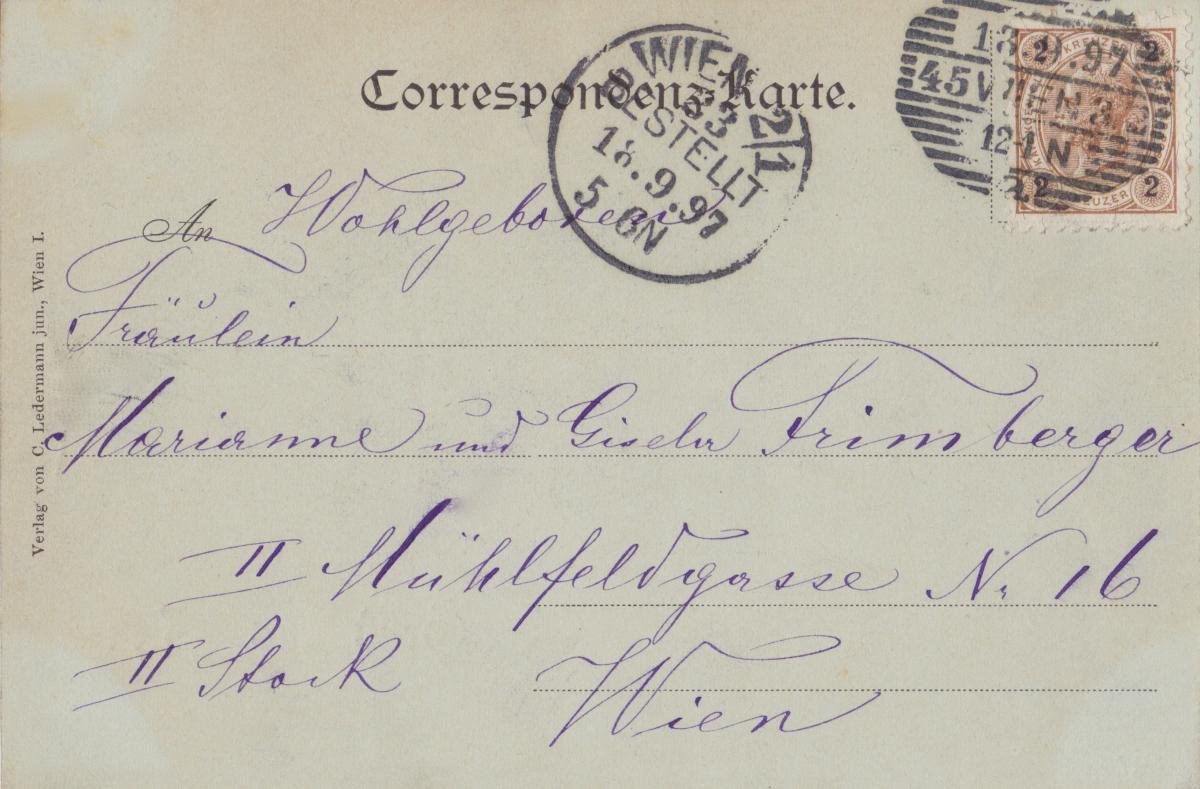 Correspondenz-Karte.
WIEN 2/1
BESTELLT
18.9.97
5 6N
18.9.97
WIEN
12-1N
2 KREUZER 2
2 2
An Wohlgeboren
Fräulein
Marianne und Gisela Frimberger
II Mühlfeldgasse Nr 16
II Stock
Wien
Verlag von C. Ledermann jun., Wien I.